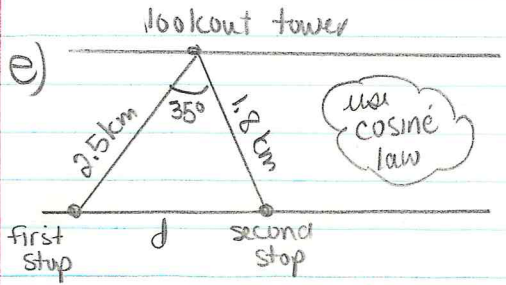 lookout tower
e)
35°
2.5km
1.8km
use
cosine
law
first
stop
d
second
stop